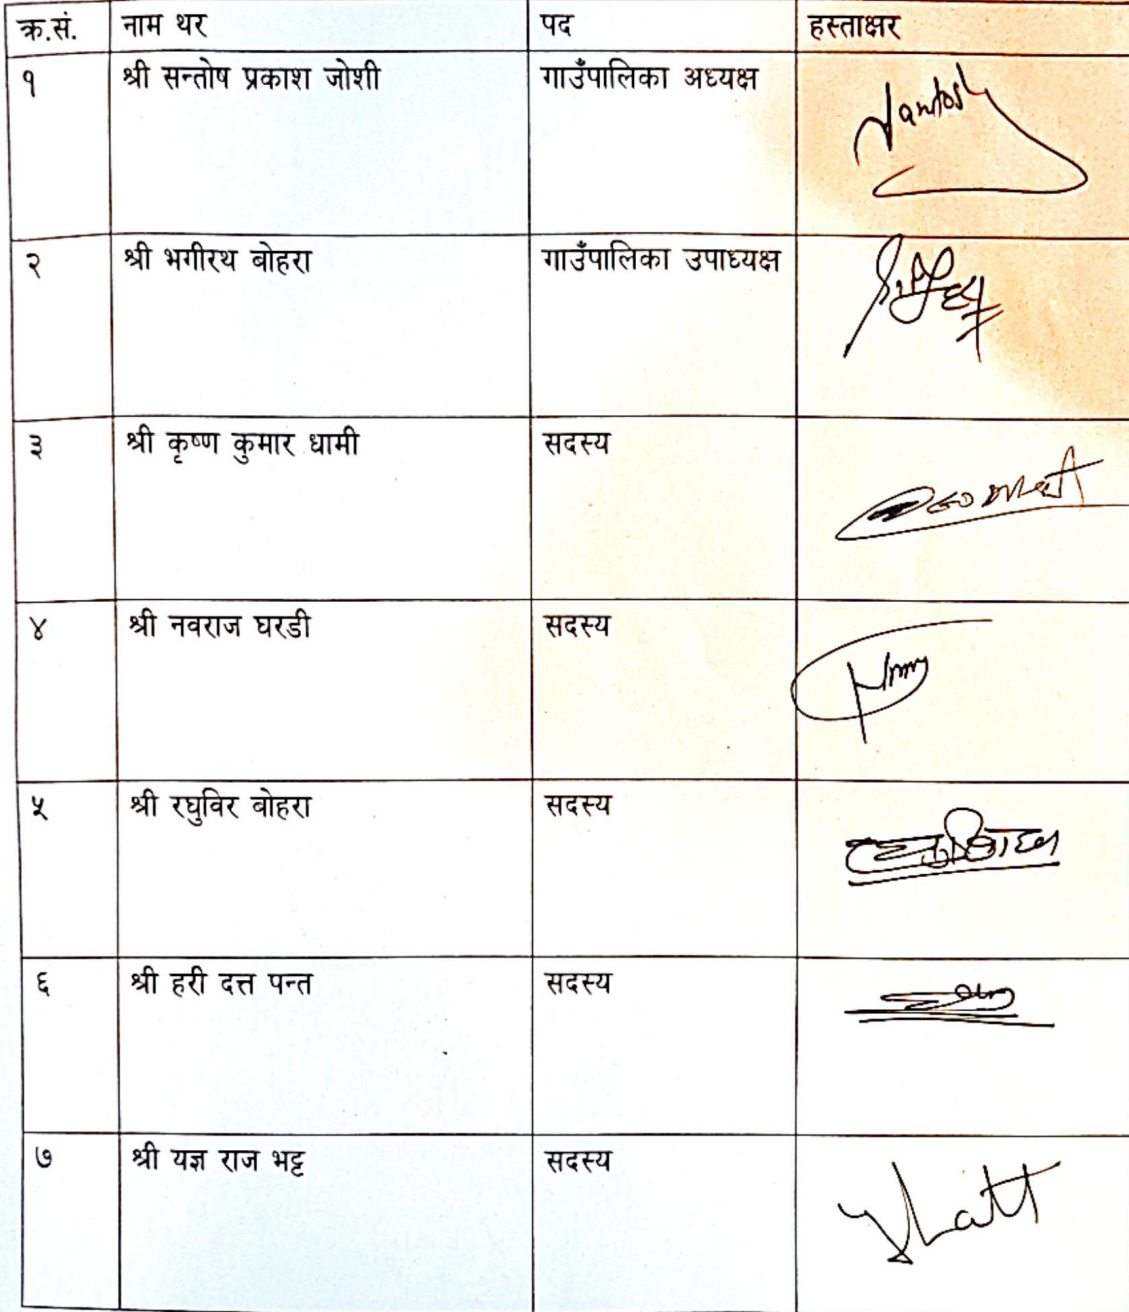 क्र.सं. नाम थर पद हस्ताक्षर
१ श्री सन्तोष प्रकाश जोशी गाउँपालिका अध्यक्ष Santosh
२ श्री भगीरथ बोहरा गाउँपालिका उपाध्यक्ष
३ श्री कृष्ण कुमार धामी सदस्य
४ श्री नवराज घरडी सदस्य
५ श्री रघुविर बोहरा सदस्य
६ श्री हरी दत्त पन्त सदस्य
७ श्री यज्ञ राज भट्ट सदस्य